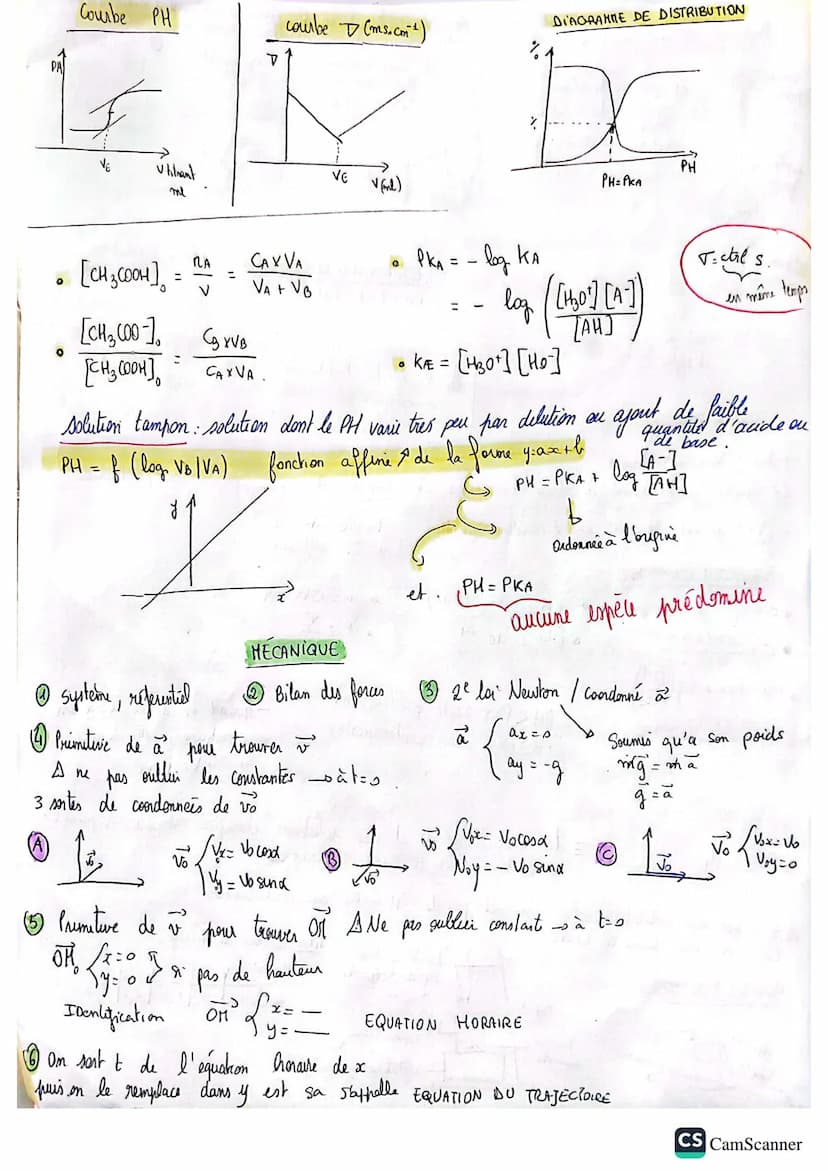 Courbe PH
courbe ∇ (ms.cm⁻¹)
DIAGRAMME DE DISTRIBUTION
PA
VE
V titrant
ml
∇
VE
V (ml)
%
%
PH=PKA
PH
• [CH3COOH]₀ = nA/V = CA x VA / VA + VB
• [CH3COO⁻]₀ / [CH3COOH]₀ = CB x VB / CA x VA.
• PKA = - log KA
= - log ([H3O⁺] [A⁻] / [AH])
• KÆ = [H3O⁺] [HO⁻]
en même temps
solution tampon : solution dont le PH varie très peu par dilution ou ajout de faible
quantité d'acide ou
de base.
PH = f (log VB/VA) fonction affine ↗ de la forme y=ax+b
PH = PKA + log [A⁻]/[AH]
ordonnée à l'origine
y
x
et. PH = PKA
aucune espèce prédomine
MÉCANIQUE
① système, référentiel ② Bilan des forces ③ 2e loi Newton / coordonné a⃗
④ Primitive de a⃗ pour trouver v⃗
Δ ne pas oublier les constantes → à t=0
3 sortes de coordonnées de v₀⃗
a⃗ { ax = 0
ay = -g
Soumis qu'a son poids
mg⃗ = ma⃗
g⃗ = a⃗
A v₀⃗ v₀⃗ { Vx = V0 cosα
Vy = V0 sinα
B v₀⃗ v⃗ { V0x = V0 cosα
V0y = - V0 sinα
C v₀⃗ v₀⃗ { V0x = V0
V0y = 0
⑤ Primitive de v⃗ pour trouver OM⃗ Δ Ne pas oublier constant → à t=0
OM₀⃗ { x = 0
y = 0 } si pas de hauteur
Identification OM⃗ { x = —
y = —
EQUATION HORAIRE
⑥ On sort t de l'équation horaire de x
puis on le remplace dans y est sa s'appelle EQUATION DU TRAJECTOIRE
CS CamScanner